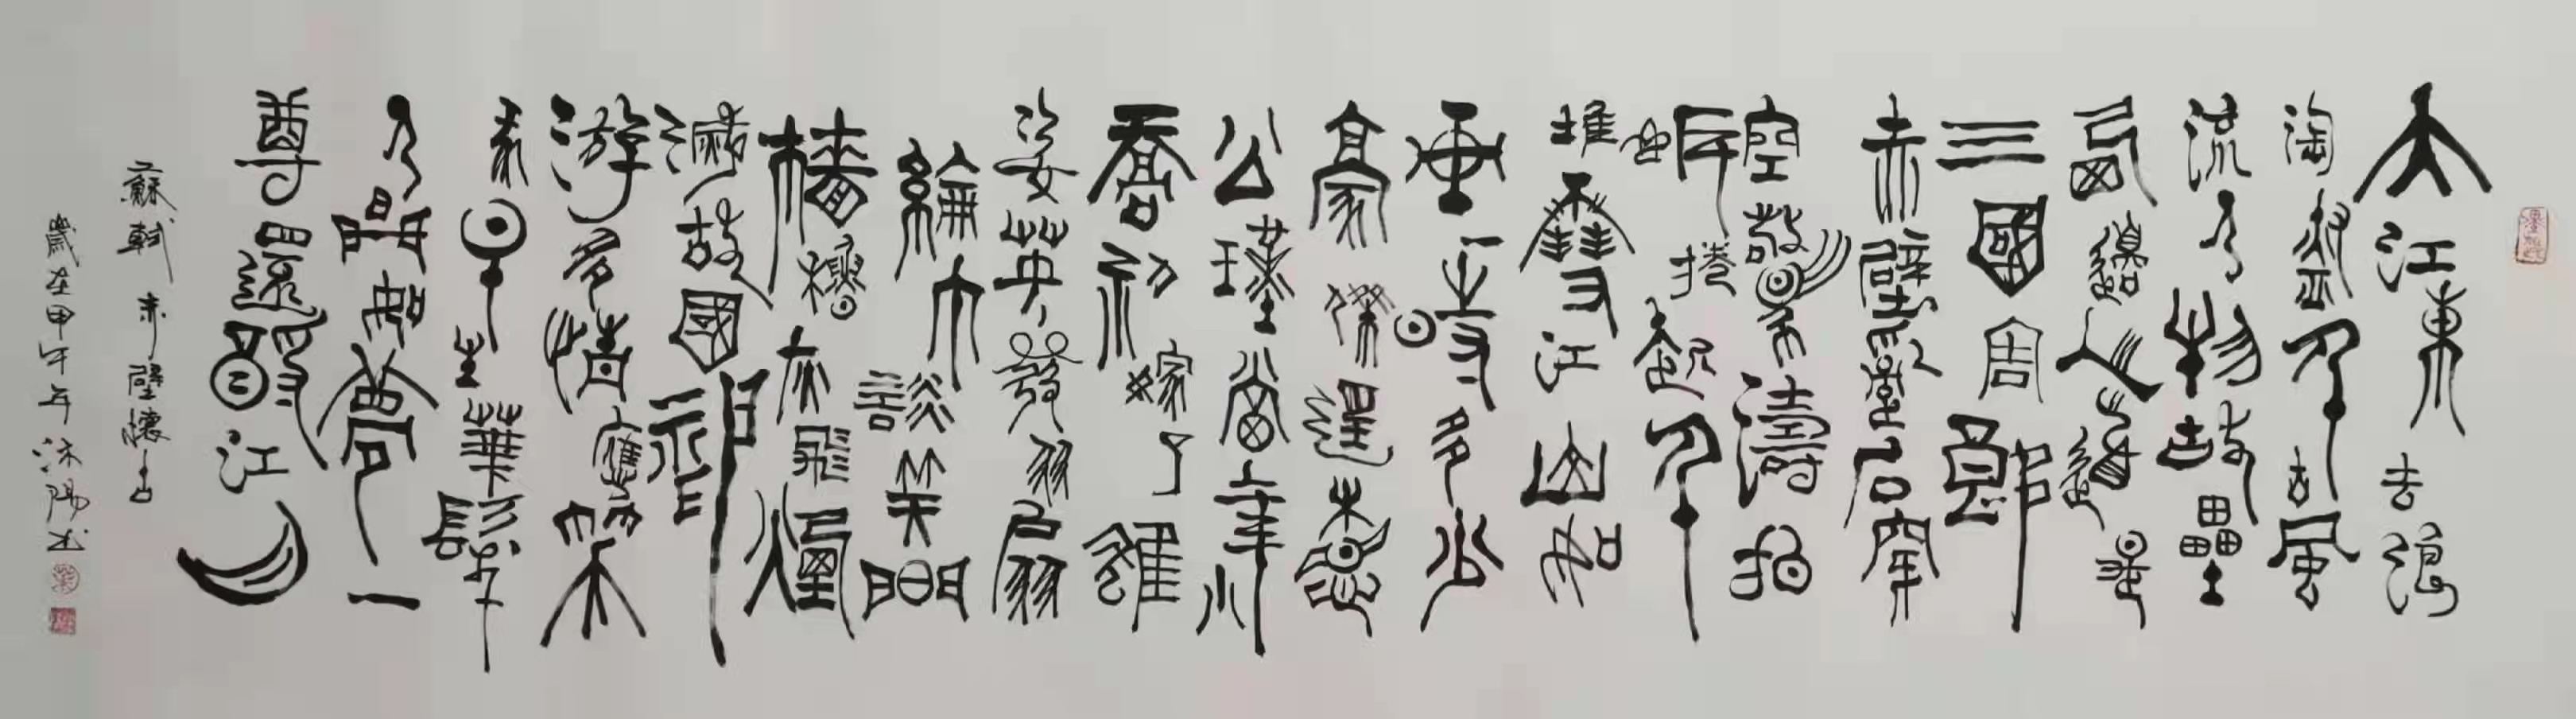 大江東去浪
淘盡千古風
流人物故壘
西邊人道是
三國周郎
赤壁亂石穿
空驚濤拍
岸捲起千
堆雪江山如
畫一時多少
豪傑遙想
公瑾當年小
喬初嫁了雄
姿英發羽扇
綸巾談笑間
檣櫓灰飛煙
滅故國神
游多情應笑
我早生華髮
人間如夢一
尊還酹江月
蘇軾赤壁懷古
歲在甲午年沐陽書